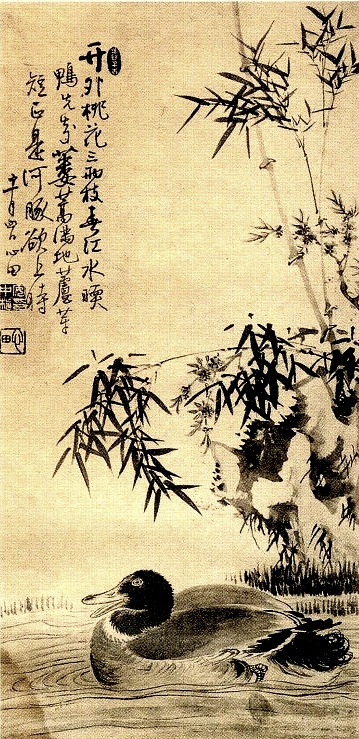 竹外桃花三兩枝春江水暖
鴨先知蔞蒿滿地蘆芽
短正是河豚欲上時
心田